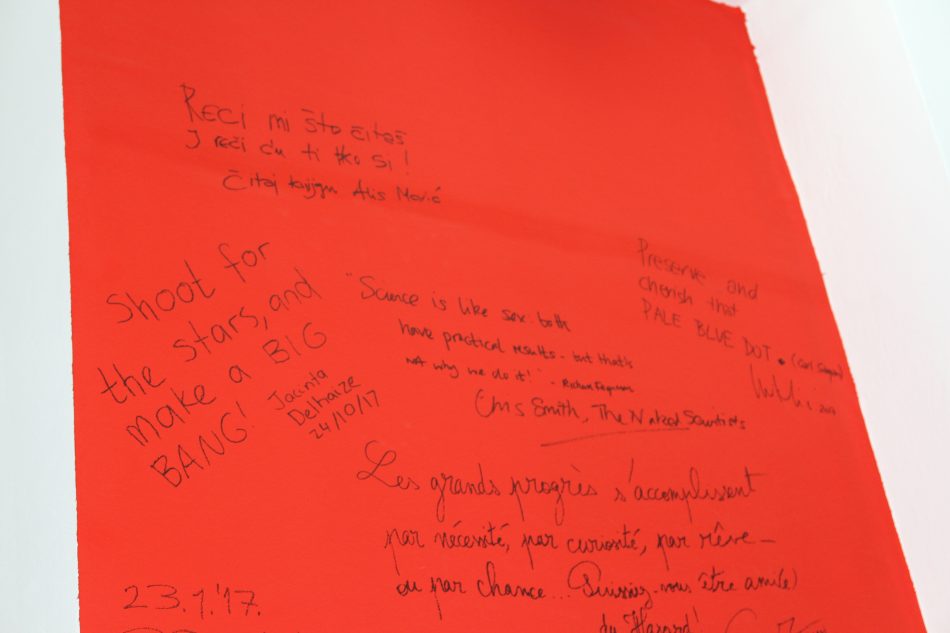 RECI mi što čitaš
I reći ću ti tko si!
Čitaj knjigu Alis Marić
Shoot for
the stars, and
make a BIG
BANG!
Jacinta
Delhaize
24/10/17
"Science is like sex: both
have practical results - but that's
not why we do it!" - Richard Feynman
Chris Smith, The Naked Scientists
Preserve and
cherish that
PALE BLUE DOT • (Carl Sagan)
2017
Les grands progrès s'accomplissent
par nécessité, par curiosité, par rêve –
ou par chance... Puissiez-vous être ami(e)
du Hasard!
23.1.'17.